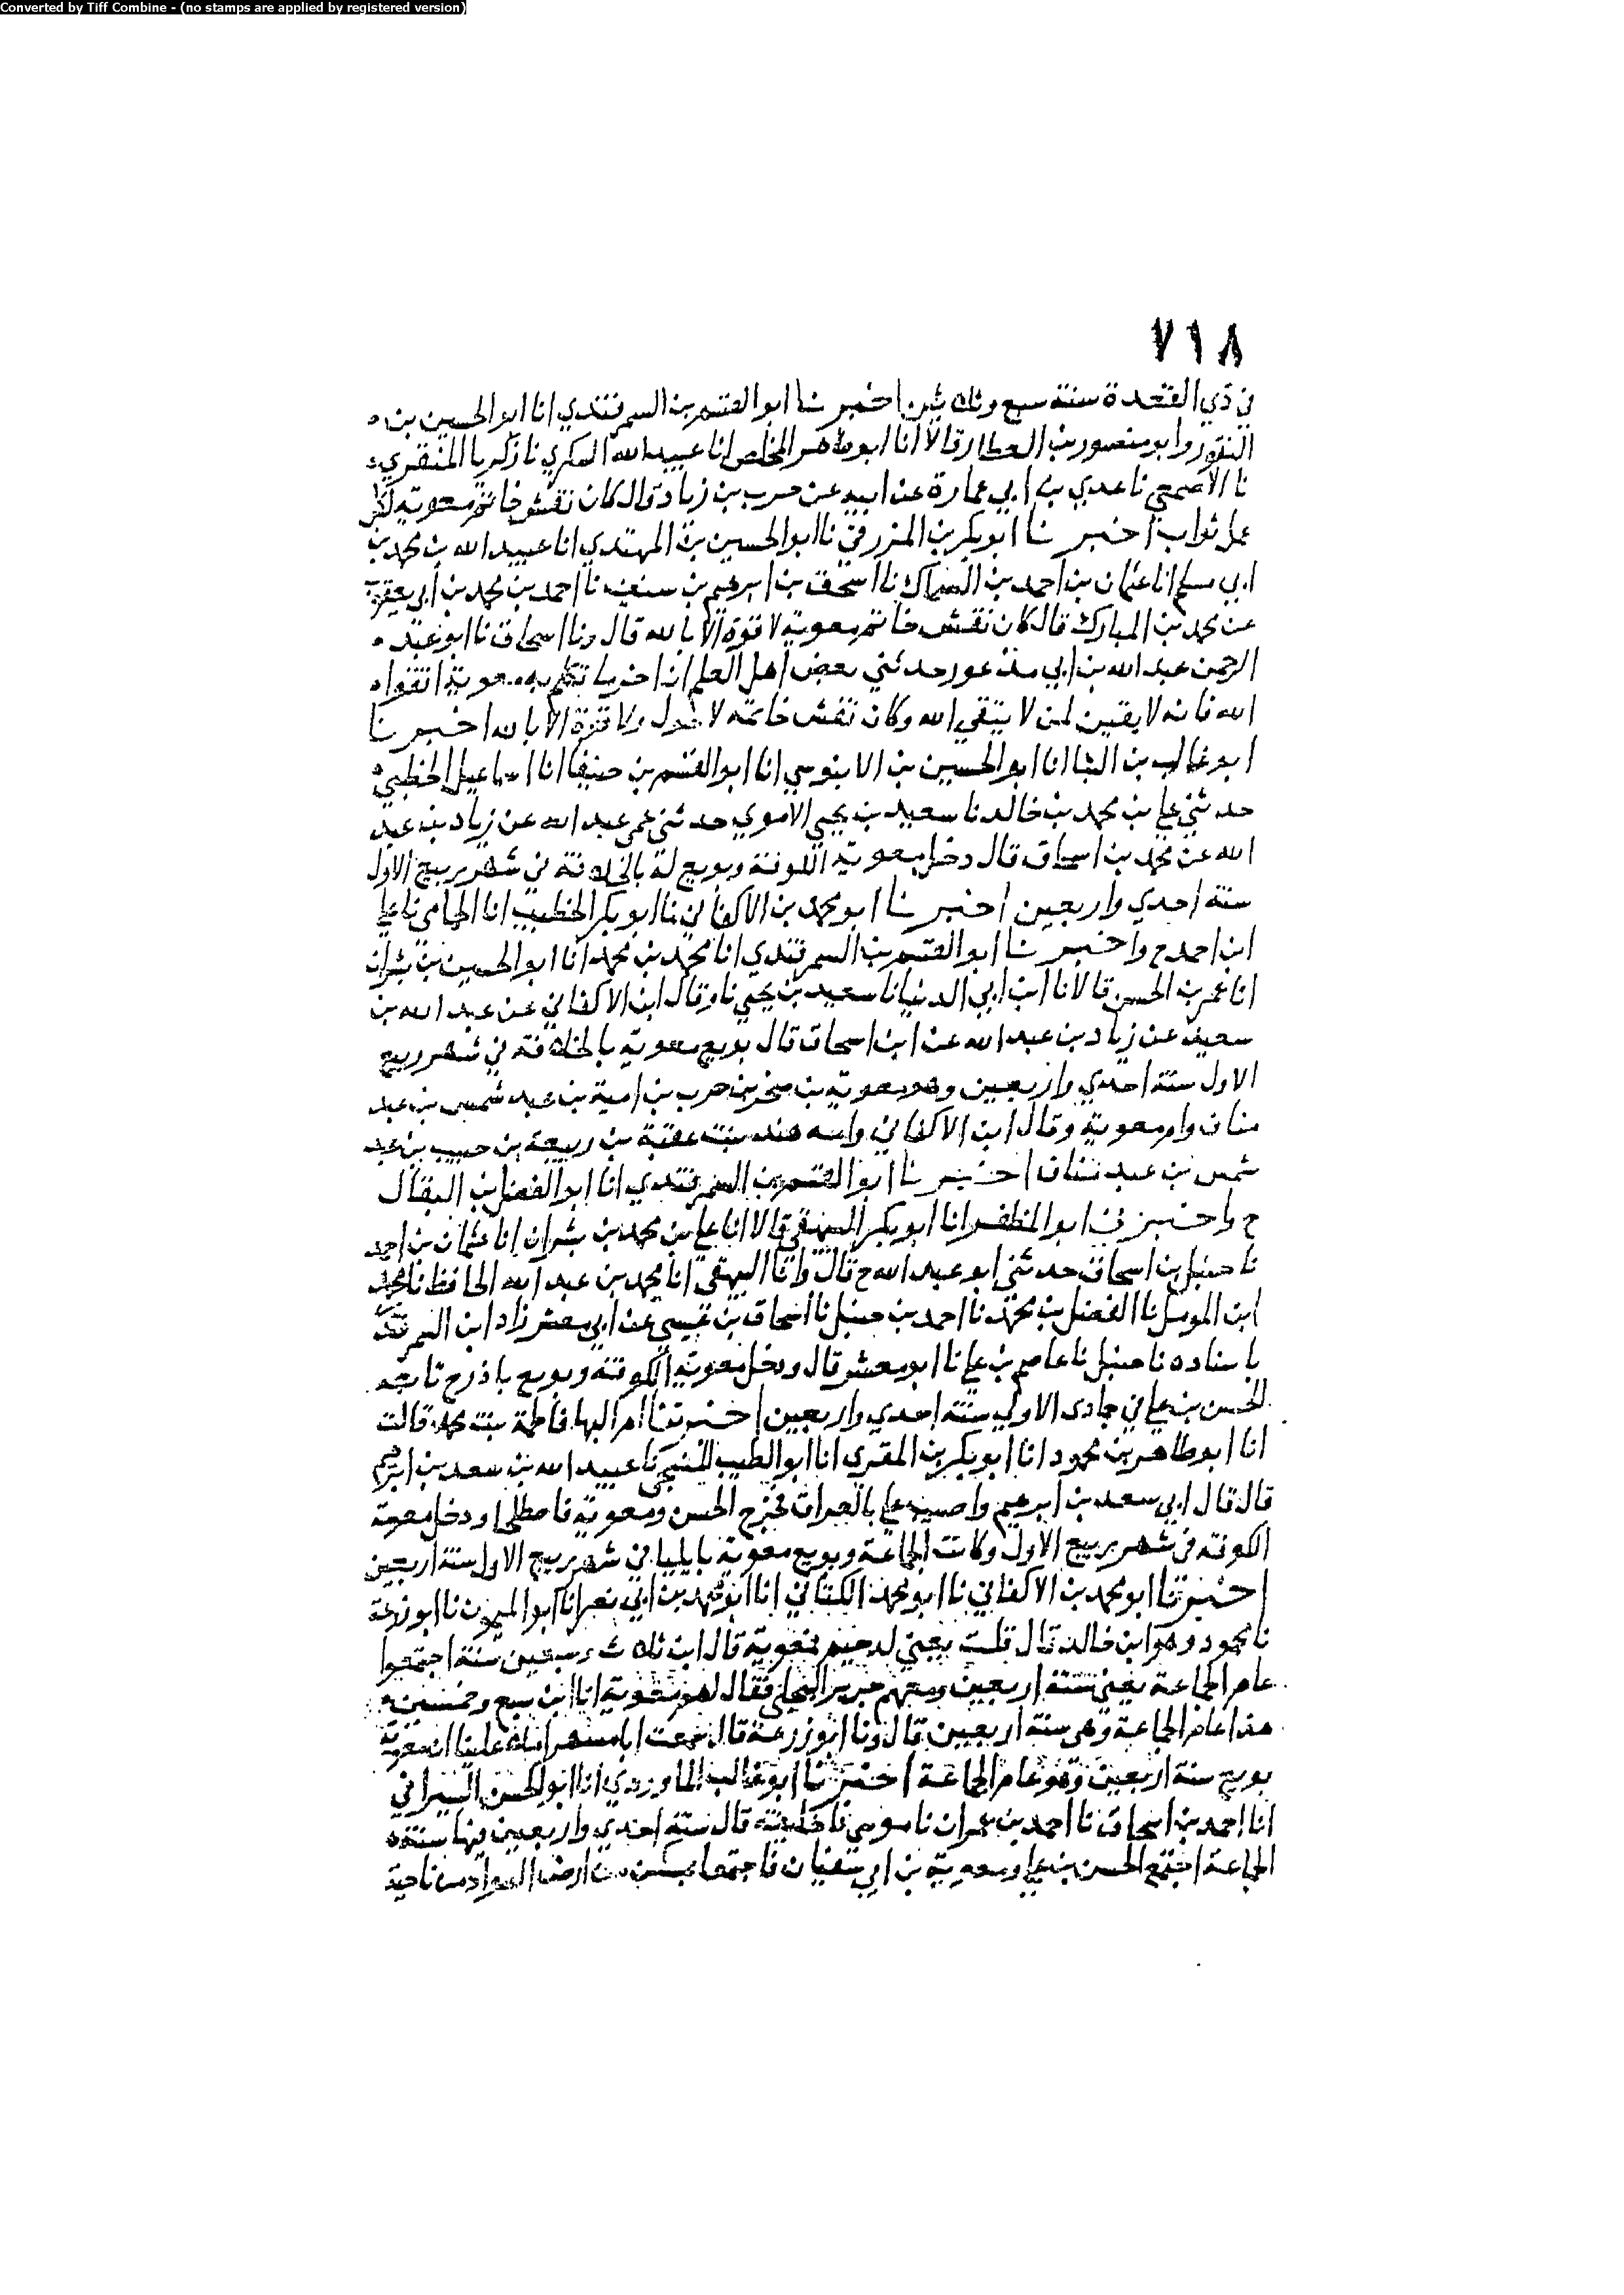 Converted by Tiff Combine - (no stamps are applied by registered version)
٧١٨
في ذي القعدة سنة سبع وثلاثين اخبرنا ابو القسم بن السمرقندي انا ابو الحسين بن
النقور وابو منصور بن العطار قالا انا ابو طاهر المخلص انا عبيد الله السكري نا زكريا المنقري
نا الاصمعي نا عدي بن ابي عمارة عن ابيه عن حرب بن زياد قال كان نقش خاتم معوية لكل
عمل ثواب اخبرنا ابو بكر بن المزرفي نا ابو الحسين بن المهتدي انا عبيد الله بن محمد بن
ابي مسلم انا عثمان بن احمد بن السماك نا اسحق بن ابرهيم بن سنين نا احمد بن محمد بن ابي يعقوب
عن محمد بن المبارك قال كان نقش خاتم معوية لا قوة الا بالله قال ونا اسحاق نا ابو عبد
الرحمن عبد الله بن ابي مذعور حدثني بعض اهل العلم ان اخر ما تكلم به معوية اتقوا
الله فانه لا يقين لمن لا يتقي الله وكان نقش خاتمه لا حول ولا قوة الا بالله اخبرنا
ابو غالب بن البنا انا ابو الحسين بن الابنوسي انا ابو القسم بن حنيفا انا اسماعيل الخطبي
حدثني علي بن محمد بن خالد نا سعيد بن يحيي الاموي حدثني عمي عبد الله عن زياد بن عبد
الله عن محمد بن اسحاق قال دخل معوية الكوفة وبويع له بالخلافة في شهر ربيع الاول
سنة احدي واربعين اخبرنا ابو محمد بن الاكفاني نا ابو بكر الخطيب انا الحمامي نا علي
ابن احمد ح واخبرنا ابو القسم بن السمرقندي انا محمد بن محمد انا ابو الحسين بن بشران
انا عمر بن الحسن قالا نا ابن ابي الدنيا نا سعيد بن يحيي نا وقال ابن الاكفاني عن عبد الله بن
سعيد عن زياد بن عبد الله عن ابن اسحاق قال بويع معوية بالخلافة في شهر ربيع
الاول سنة احدي واربعين وهو معوية بن صخر بن حرب بن امية بن عبد شمس بن عبد
مناف وام معوية وقال ابن الاكفاني وامه هند بنت عقبة بن ربيعة بن حبيب بن عبد
شمس بن عبد مناف اخبرنا ابو القسم بن السمرقندي انا ابو الفضل بن البقال
ح واخبرنا ابو المظفر انا ابو بكر البيهقي قالا انا علي بن محمد بن بشران انا عثمان بن احمد
نا حنبل بن اسحاق حدثني ابو عبد الله ح قال وانا البيهقي انا محمد بن عبد الله الحافظ نا محمد
ابن المومل نا الفضل بن محمد نا احمد بن حنبل نا اسحاق بن عيسي عن ابي معشر زاد ابن السمرقندي
باسناده نا حنبل نا عاصم بن علي نا ابو معشر قال ودخل معوية الكوفة وبويع باذرح تابعه
الحسن بن علي في جمادى الاولي سنة احدي واربعين اخبرتنا ام البها فاطمة بنت محمد قالت
انا ابو طاهر بن محمود انا ابو بكر بن المقرى انا ابو الطيب المنبجي نا عبيد الله بن سعد بن ابرهيم
قال قال ابي سعد بن ابرهيم واصيب علي بالعراق فخرج الحسن ومعوية فاصطلحا ودخل معوية
الكوفة في شهر ربيع الاول وكانت الجماعة وبويع معوية بايليا في شهر ربيع الاول سنة اربعين
اخبرنا ابو محمد بن الاكفاني نا ابو محمد الكتاني انا ابو محمد بن ابي نصر انا ابو الميمون نا ابو زرعة
نا محمود وهو ابن خالد قال قلت يعني لدحيم فمعوية قال ابن ثلاث وسبعين سنة اجتمعوا
عام الجماعة يعني سنة اربعين ومعهم جرير البجلي فقال لهم معوية انا ابن سبع وخمسين
هذا عام الجماعة وهي سنة اربعين قال ونا ابو زرعة قال سمعت ابا مسهر املاه علينا ان معوية
بويع سنة اربعين وهو عام الجماعة اخبرنا ابو غالب الماوردي انا ابو الحسن السيرافي
انا احمد بن اسحاق نا احمد بن عمران نا موسي نا خليفة قال سنة احدي واربعين فيها سنة
الجماعة اجتمع الحسن بن علي ومعوية بن ابي سفيان فاجتمعا بمسكن من ارض السواد من ناحية